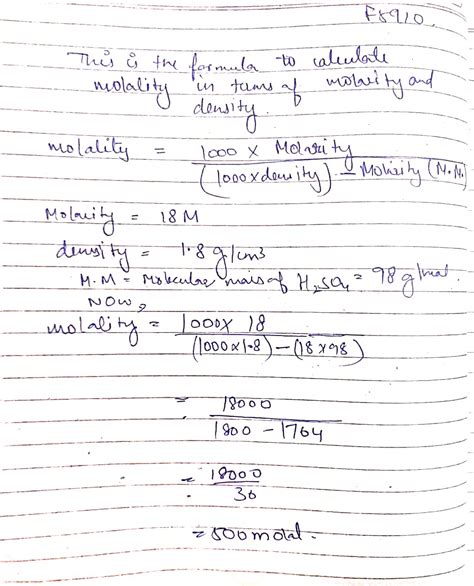 F8910.
This is the formula to calculate
molality in terms of molarity and
density.
molality = 1000 x Molarity
(1000xdensity) - Molarity (M.M.)
Molarity = 18M
density = 1.8 g/cm3
M.M = Molecular mass of H2SO4 = 98 g/mol.
NOW,
molality = 1000x 18
(1000x1.8) - (18x98)
= 18000
1800 - 1764
= 18000
36
= 500 molal.